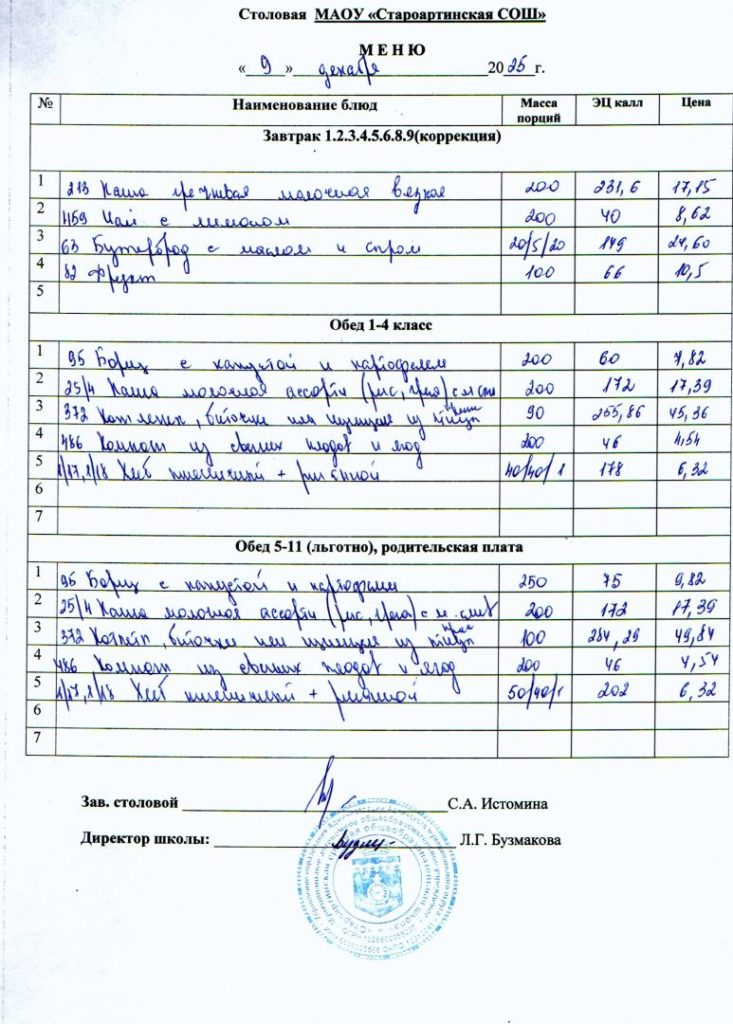 Столовая МАОУ «Староартинская СОШ»
М Е Н Ю
« 9 » декабря 2025 г.
№ Наименование блюд Масса порций ЭЦ калл Цена
Завтрак 1.2.3.4.5.6.8.9(коррекция)
1 213 Каша гречневая молочная вязкая 200 231,6 17,15
2 459 Чай с лимоном 200 40 8,62
3 63 Бутерброд с маслом и сыром 20/5/20 149 24,60
4 82 Фрукт 100 66 10,5
5
Обед 1-4 класс
1 95 Борщ с капустой и картофелем 200 60 7,82
2 25/4 Каша молочная ассорти (рис, греча) с м 200 172 17,39
3 372 Котлеты, биточки или шницели из птицы 90 255,86 45,36
4 486 Компот из свежих плодов и ягод 200 46 4,54
5 1/17,1/18 Хлеб пшеничный + ржаной 40/40/1 178 6,32
6
7
Обед 5-11 (льготно), родительская плата
1 95 Борщ с капустой и картофелем 250 75 9,82
2 25/4 Каша молочная ассорти (рис, греча) с м. 200 172 17,39
3 372 Котлеты, биточки или шницели из птицы 100 284,29 49,84
4 486 Компот из свежих плодов и ягод 200 46 4,54
5 1/17,1/18 Хлеб пшеничный + ржаной 50/40/1 202 6,32
6
7
Зав. столовой С.А. Истомина
Директор школы: Л.Г. Бузмакова